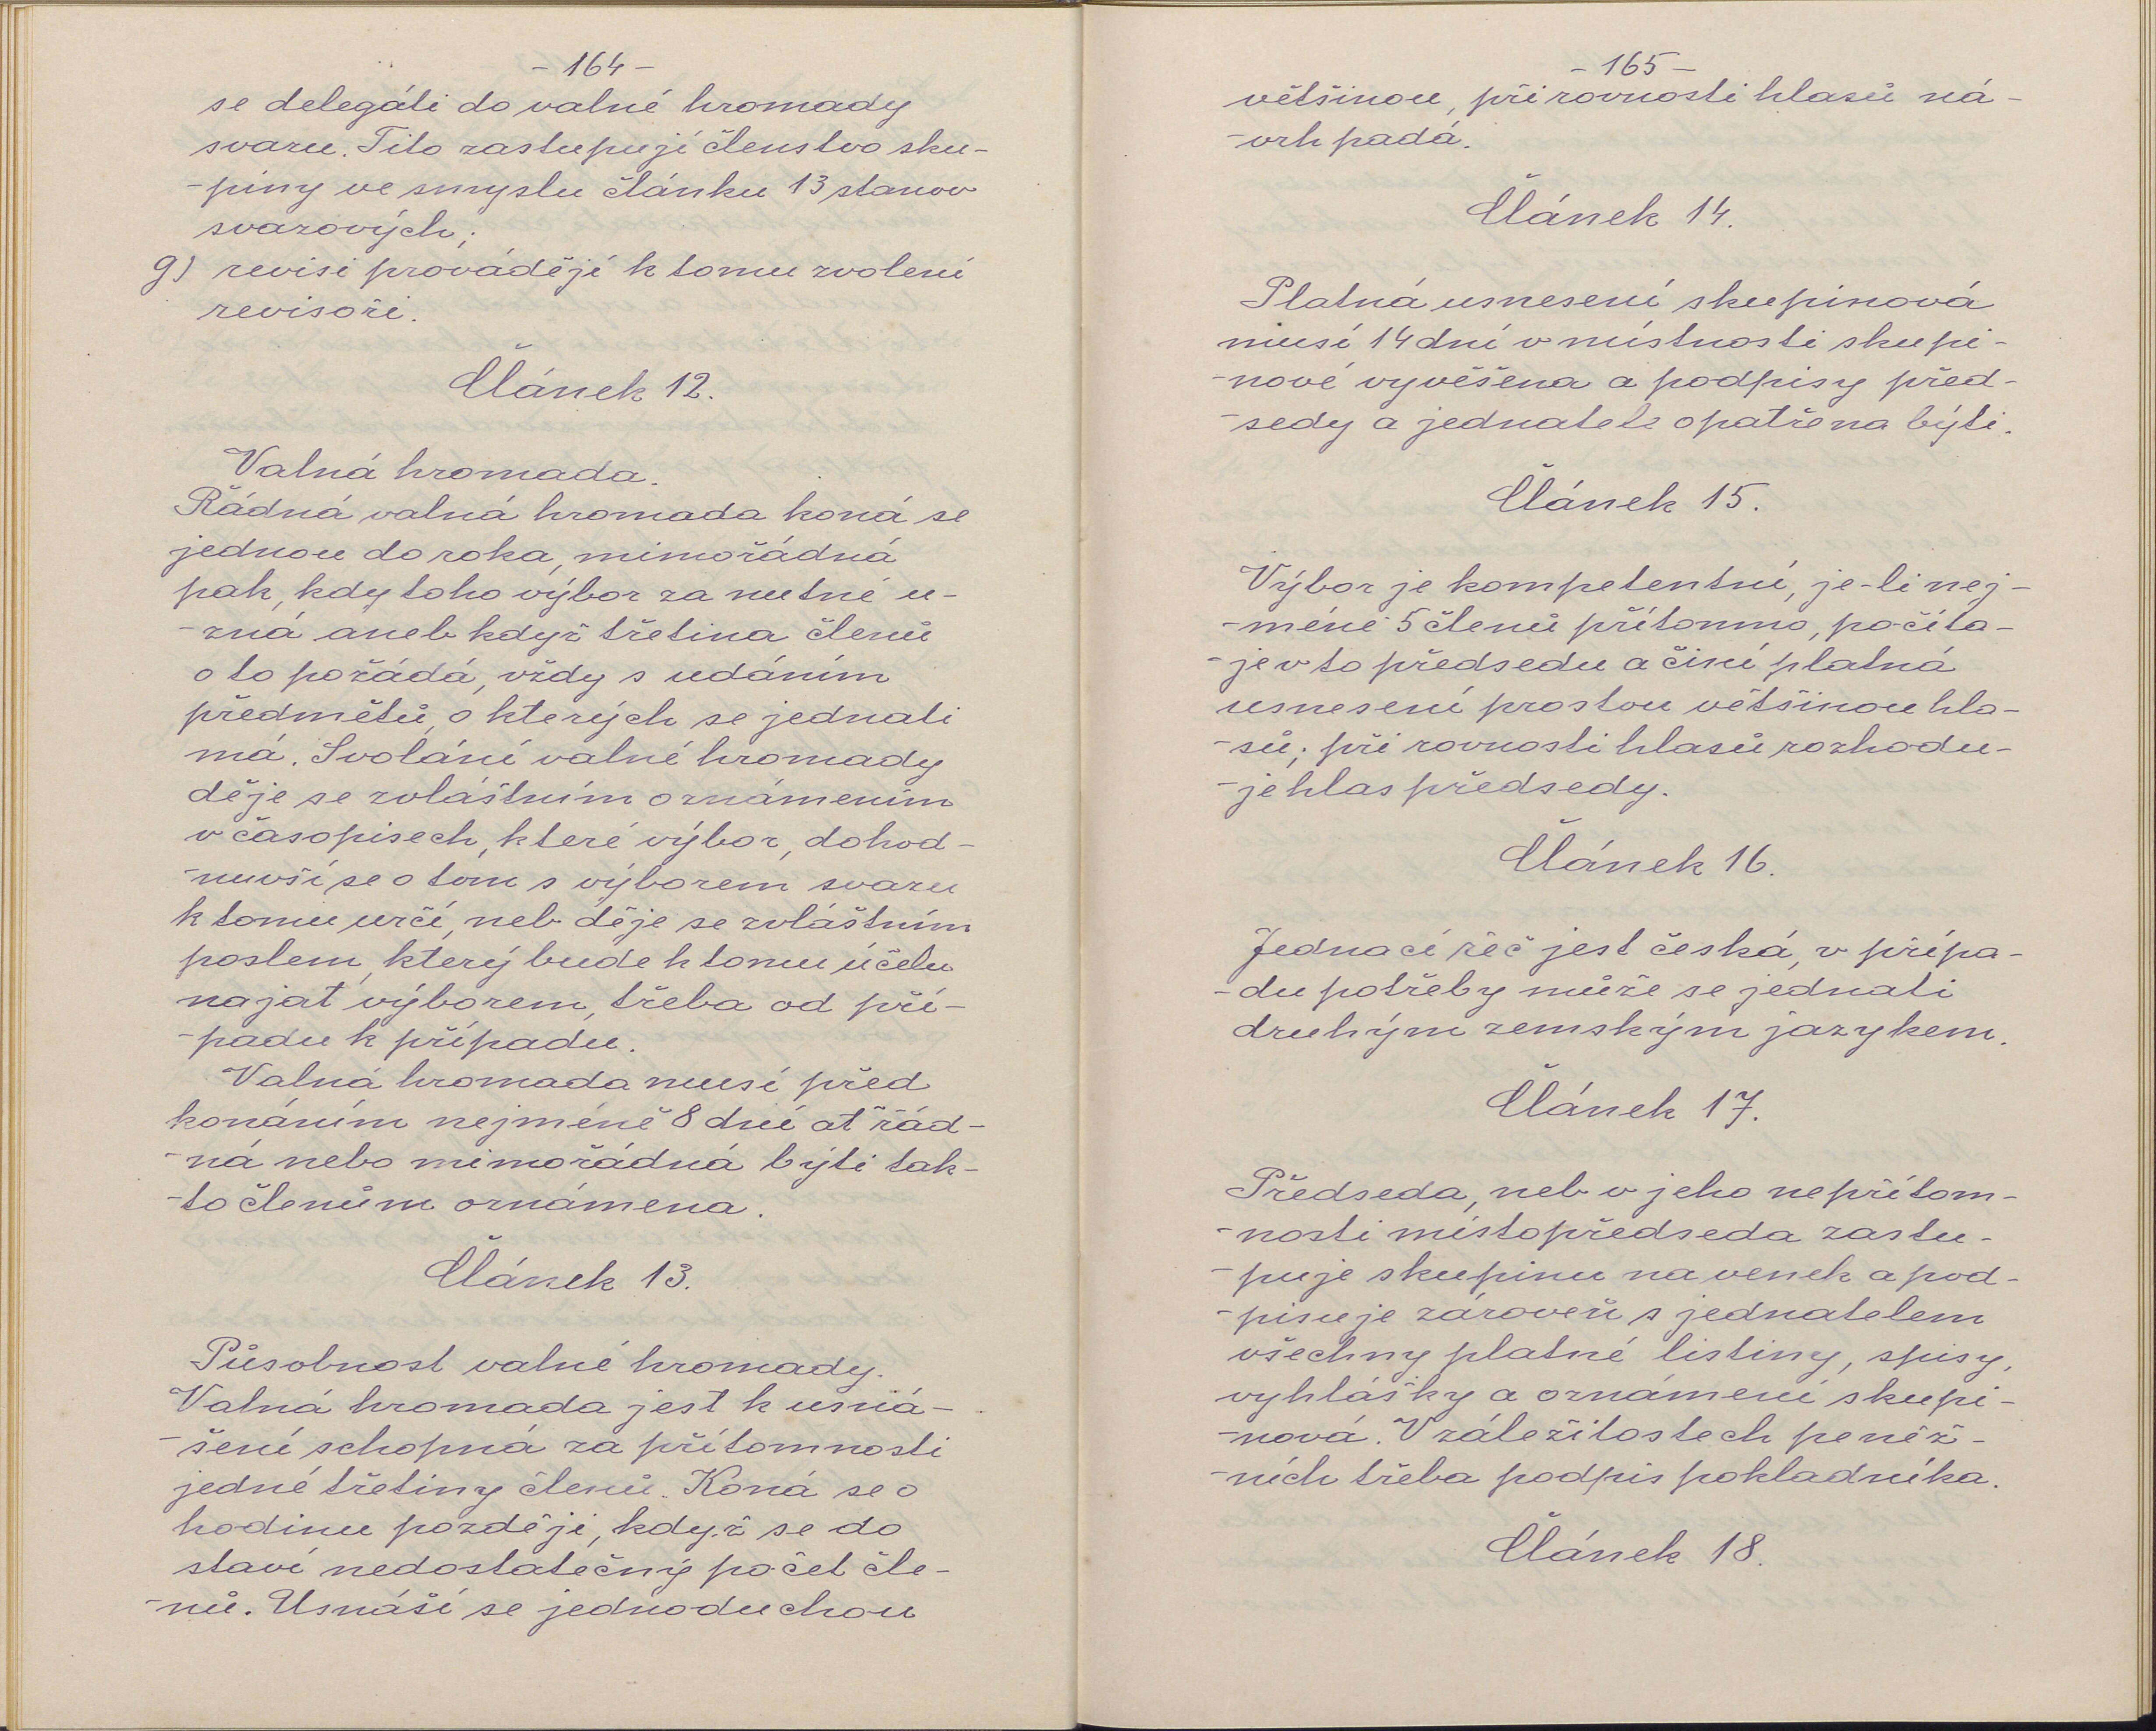 - 164 -
se delegáti do valné hromady
svazu. Tito zastupují členstvo sku-
-piny ve smyslu článku 13 stanov
svazových;
g) revisi provádějí k tomu zvolení
revisoři.
Článek 12.
Valná hromada.
Řádná valná hromada koná se
jednou do roka, mimořádná
pak, kdy toho výbor za nutné u-
-zná aneb když třetina členů
o to požádá, vždy s udáním
předmětů, o kterých se jednati
má. Svolání valné hromady
děje se zvláštním oznámením
v časopisech, které výbor, dohod-
-nuvší se o tom s výborem svazu
k tomu určí, neb děje se zvláštním
poslem, který bude k tomu účelu
najat výborem, třeba od pří-
-padu k případu.
Valná hromada musí před
konáním nejméně 8 dní ať řád-
-ná nebo mimořádná býti tak-
-to členům oznámena.
Článek 13.
Působnost valné hromady.
Valná hromada jest k usná-
-šení schopná za přítomnosti
jedné třetiny členů. Koná se o
hodinu později, když se do
staví nedostatečný počet čle-
-nů. Usnáší se jednoduchou
- 165 -
většinou, při rovnosti hlasů ná-
-vrh padá.
Článek 14.
Platná usnesení skupinová
musí 14 dní v místnosti skupi-
-nové vyvěšena a podpisy před-
-sedy a jednatele opatřena býti.
Článek 15.
Výbor je kompetentní, je-li nej-
-méně 5 členů přítomno, počíta-
-je v to předsedu a činí platná
usnesení prostou většinou hla-
-sů; při rovnosti hlasů rozhodu-
-je hlas předsedy.
Článek 16.
Jednací řeč jest česká, v přípa-
-du potřeby může se jednati
druhým zemským jazykem.
Článek 17.
Předseda, neb v jeho nepřítom-
-nosti místopředseda zastu-
-puje skupinu na venek a pod-
-pisuje zároveň s jednatelem
všechny platné listiny, spisy,
vyhlášky a oznámení skupi-
-nová. V záležitostech peněž-
-ních třeba podpis pokladníka.
Článek 18.